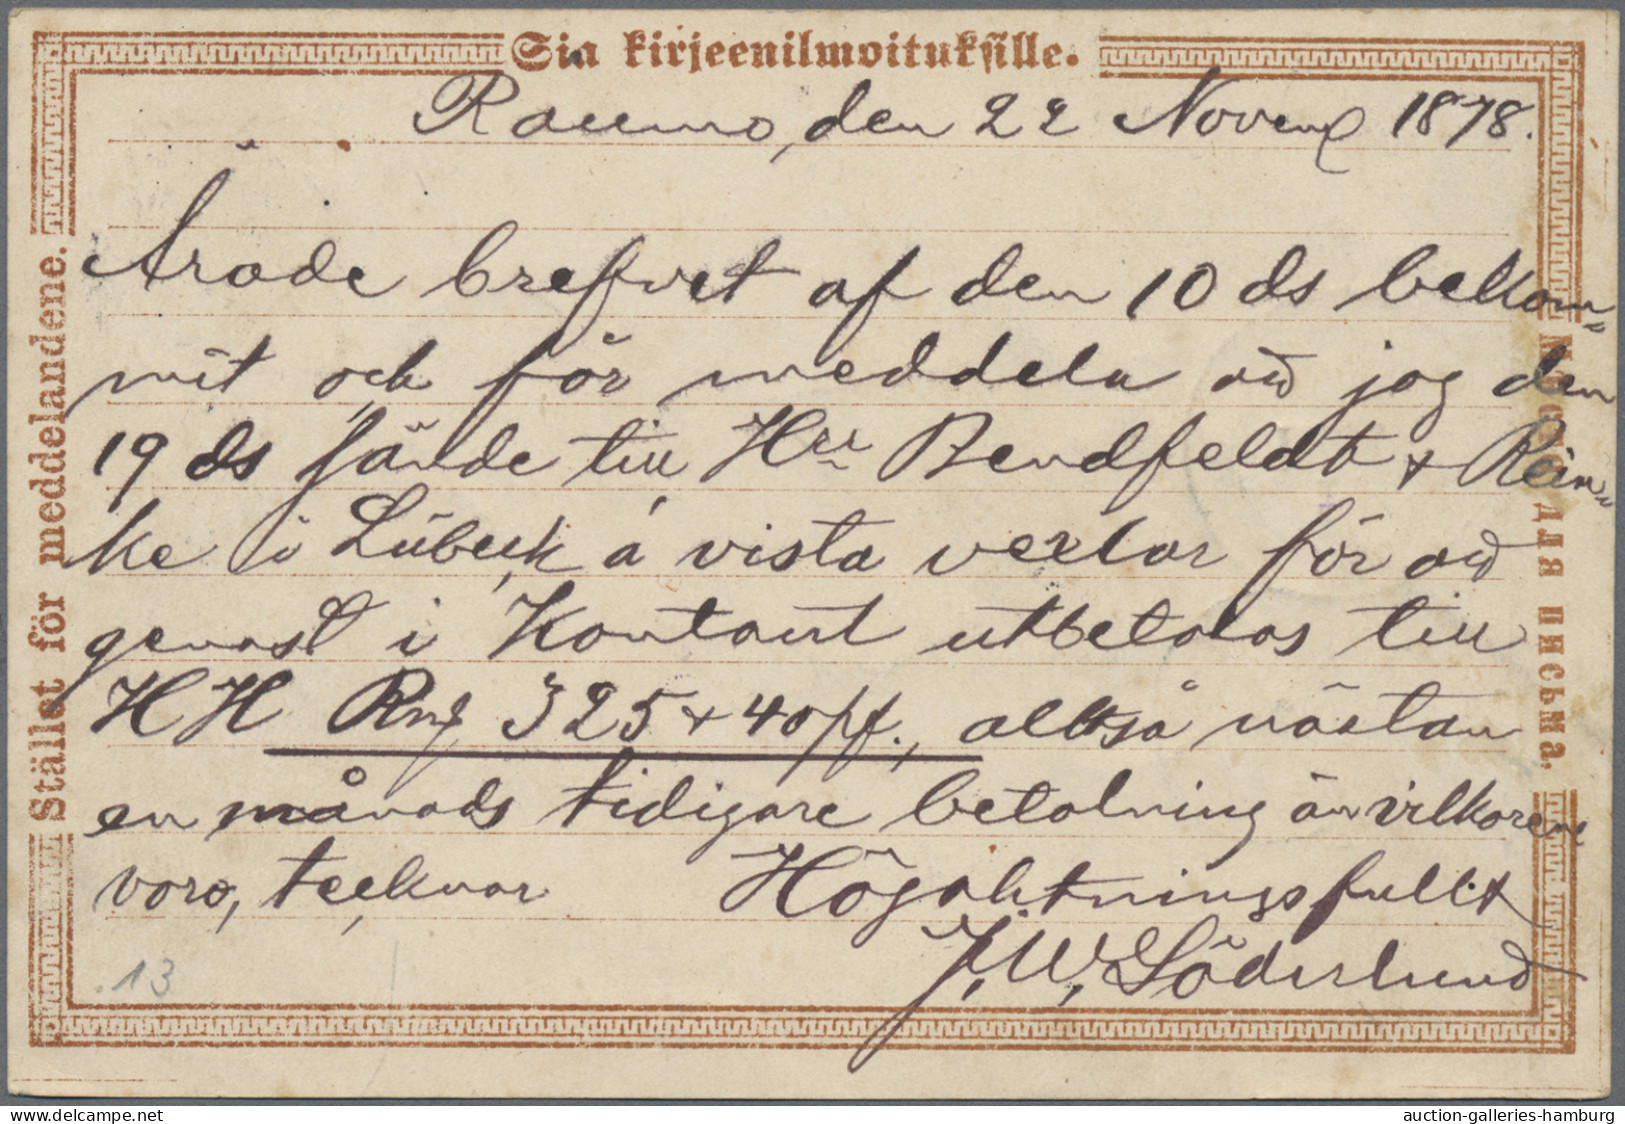 Sia kirjeenilmoituksille.
Raumo, den 22 Novemb 1878.
Ärade brefvet af den 10 ds bekom-
mit och får meddela att jag den
19 ds sände till Hrr Bendfeldt & Rein-
ke i Lübeck á vista vexlar för att
genast i Kontant utbetalas till
HH Rmk 325 & 40 pf., alltså nästan
en månads tidigare betalning än vilkoren
voro, tecknar Högaktningsfullt
J. W. Söderlund
Stället för meddelandene.
Мѣсто для письма.
.13
auction-galleries-hamburg
delcampe.net